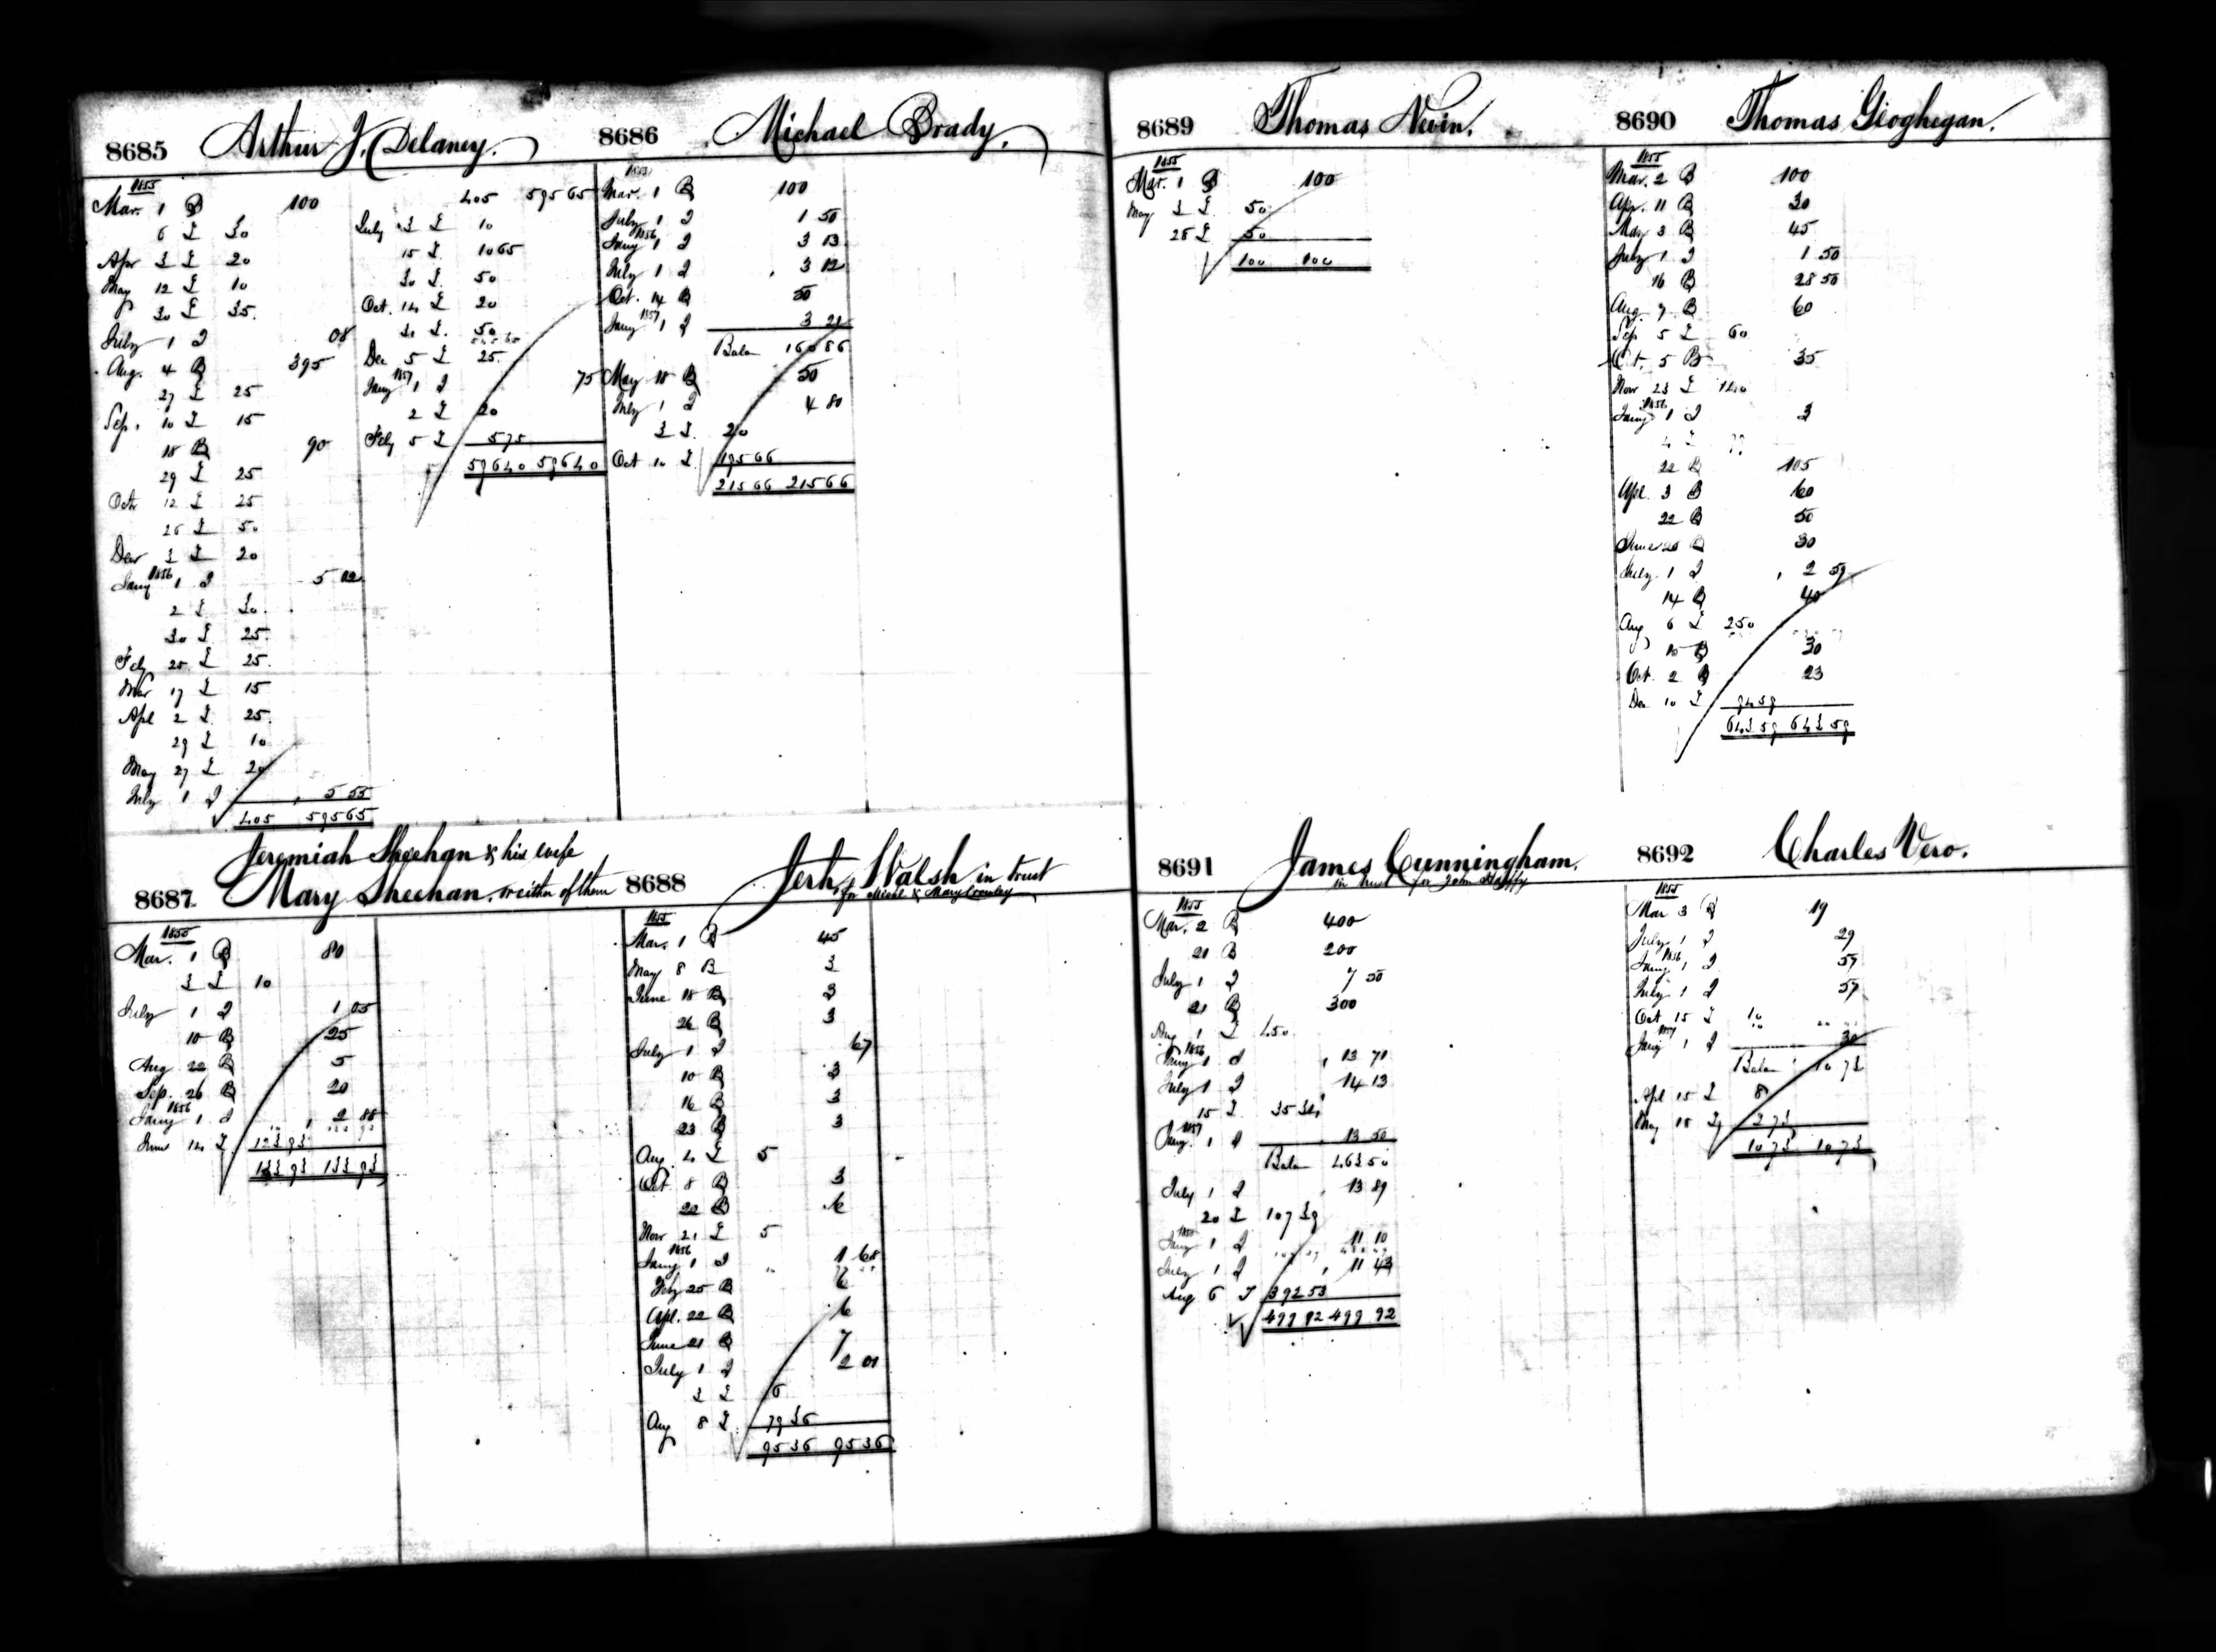 8685 Arthur J. Delaney.
1855
Mar. 1 B 100
6 £ 30
Apr 3 £ 20
May 12 £ 10
30 £ 35.
July 1 I 08
Aug. 4 B 395
27 £ 25
Sep. 10 £ 15
18 B 90
29 £ 25
Octr 12 £ 25
26 £ 50
Decr 3 £ 20
Jany 1856 1 I 5 02
2 £ 30.
30 £ 25.
Feby 25 £ 25.
Mar 17 £ 15
Apl 2 £ 25.
29 £ 10
May 27 £ 20
July 1 I 5 55
405 595 65
405 595 65
July 3 £ 10
15 £ 10 65
30 £ 50
Oct. 14 £ 20
31 £. 50
Dec 5 £ 25.
Jany 1857 1 I 75
2 £ 20
Feby 5 £ 5 75
596 40 596 40
8686 Michael Brady.
1855
Mar. 1 B 100
July 1 I 1 50
Jany 1856 1 I 3 13
July 1 I 3 12
Oct. 14 B 50
Jany 1857 1 I 3 21
Balan 160 86
May 18 B 50
July 1 I 4 80
3 £. 20
Oct 10 £ 195 66
215 66 215 66
Jeremiah Sheehan & his wife
8687 Mary Sheehan, or either of them
1855
Mar. 1 B 80
3 £ 10
July 1 I 1 05
10 B 25
Aug 22 B 5
Sep. 26 B 20
Jany 1856 1 I 2 88
June 14 £ 123 93
133 93 133 93
8688 Jerh Walsh in trust
for Michl & Mary
1855
Mar. 1 B 45
May 8 B 3
June 18 B 3
26 B 3
July 1 I 67
10 B 3
16 B 3
23 B 3
Aug. 4 £ 5
Oct 8 B 3
22 B 6
Nov 21 £ 5
Jany 1856 1 I 1 68
Feby 25 B 6
Apl. 22 B 6
June 21 B 7
July 1 I 2 01
3 £ 6
Aug 8 £ 79 36
95 36 95 36
8689 Thomas Nevin.
1855
Mar. 1 B 100
May 3 £ 50
28 £ 50
100 100
8690 Thomas Gioghegan.
1855
Mar. 2 B 100
Apr. 11 B 30
May 3 B 45
July 1 I 1 50
16 B 28 50
Aug. 7 B 60
Sep 5 £ 60
Oct. 5 B 35
Nov 23 £ 140
Jany 1856 1 I 3
22 B 105
Apl. 3 B 60
22 B 50
June 25 B 30
July 1 I 2 59
14 B 40
Aug 6 £ 250
B 30
Oct. 2 B 23
Dec 10 £ 94 59
643 59 643 59
8691 James Cunningham.
in trust for John
1855
Mar. 2 B 400
21 B 200
July 1 I 7 50
21 B 300
Aug 1 £ 450
Jany 1856 1 I 13 71
July 1 I 14 13
15 £ 35 34
Jany. 1857 1 I 13 50
Balan 463 50
July 1 I 13 89
20 £ 107 39
Jany 1858 1 I 11 10
July 1 I 11 43
Aug 6 392 53
499 92 499 92
8692 Charles Vero.
1855
Mar 3 B 19
July 1 I 29
Jany 1856 1 I 57
July 1 I 57
Oct 15 £ 10
Jany 1857 1 I 30
Balan 10 73
Apl 15 £ 8
May 18 £ 2 73
10 73 10 73